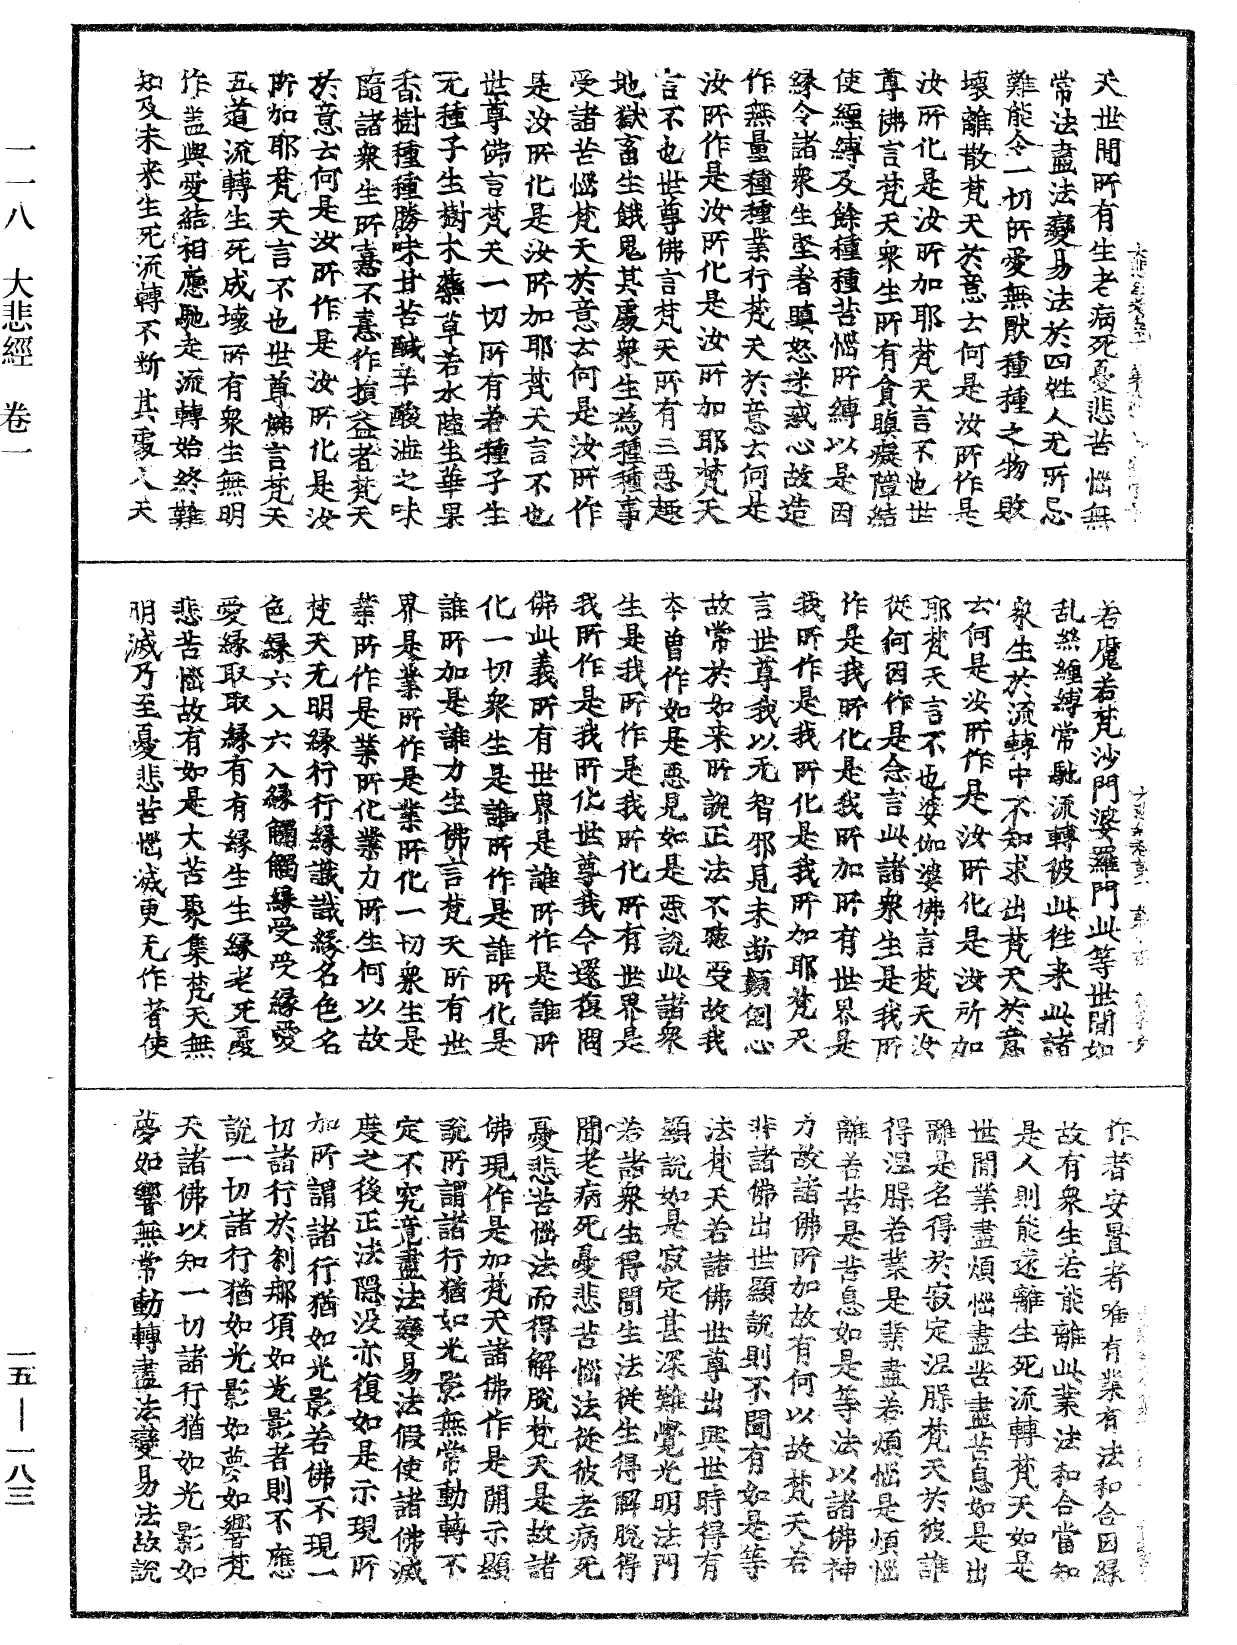 天世間所有生老病死憂悲苦惱無
常法盡法變易法於四姓人尤所忌
難能令一切所愛無猒種種之物敗
壞離散梵天於意云何是汝所作是
汝所化是汝所加耶梵天言不也世
尊佛言梵天衆生所有貪瞋癡障結
使纏縛及餘種種苦惱所縛以是因
緣令諸衆生堅著瞋怒迷惑心故造
作無量種種業行梵天於意云何是
汝所作是汝所化是汝所加耶梵天
言不也世尊佛言梵天所有三惡趣
地獄畜生餓鬼其處衆生為種種事
受諸苦惱梵天於意云何是汝所作
是汝所化是汝所加耶梵天言不也
世尊佛言梵天一切所有若種子生
无種子生樹木藥草若水陸生華果
香樹種種勝味甘苦鹹辛酸澁之味
隨諸衆生所憙不憙作損益者梵天
於意云何是汝所作是汝所化是汝
所加耶梵天言不也世尊佛言梵天
五道流轉生死成壞所有衆生無明
作蓋與愛結相應馳走流轉始終難
知及未來生死流轉不斷其處人天
若魔若梵沙門婆羅門此等世間如
乱絲纏縛常馳流轉彼此往來此諸
衆生於流轉中不知求出梵天於意
云何是汝所作是汝所化是汝所加
耶梵天言不也婆伽婆佛言梵天汝
從何因作是念言此諸衆生是我所
作是我所化是我所加所有世界是
我所作是我所化是我所加耶梵天
言世尊我以无智邪見未斷顛倒心
故常於如来所說正法不聽受故我
本曽作如是惡見如是惡說此諸衆
生是我所作是我所化所有世界是
我所作是我所化世尊我今還復問
佛此義所有世界是誰所作是誰所
化一切衆生是誰所作是誰所化是
誰所加是誰力生佛言梵天所有世
界是業所作是業所化一切衆生是
業所作是業所化業力所生何以故
梵天无明緣行行緣識識緣名色名
色緣六入六入緣觸觸緣受受緣愛
愛緣取取緣有有緣生生緣老死憂
悲苦惱故有如是大苦聚集梵天無
明滅乃至憂悲苦惱滅更无作者使
作者安置者唯有業有法和合因緣
故有衆生若能離此業法和合當知
是人則能遠離生死流轉梵天如是
世間業盡煩惱盡苦盡苦息如是出
離是名得於寂定涅槃梵天於彼誰
得涅槃若業是業盡若煩惱是煩惱
離若苦是苦息如是等法以諸佛神
力故諸佛所加故有何以故梵天若
非諸佛出世顯說則不聞有如是等
法梵天若諸佛世尊出興世時得有
顯說如是寂定甚深難覺光明法門
若諸衆生得聞生法從生得解脫得
聞老病死憂悲苦惱法從彼老病死
憂悲苦惱法而得解脫梵天是故諸
佛現作是加梵天諸佛作是開示顯
說所謂諸行猶如光影無常動轉不
定不究竟盡法變易法假使諸佛滅
度之後正法隱没亦復如是示現所
加所謂諸行猶如光影若佛不現一
切諸行於刹那頃如光影者則不應
說一切諸行猶如光影如夢如響梵
天諸佛以知一切諸行猶如光影如
夢如響無常動轉盡法變易法故說
一一八 大悲經 卷一
一五—一八三